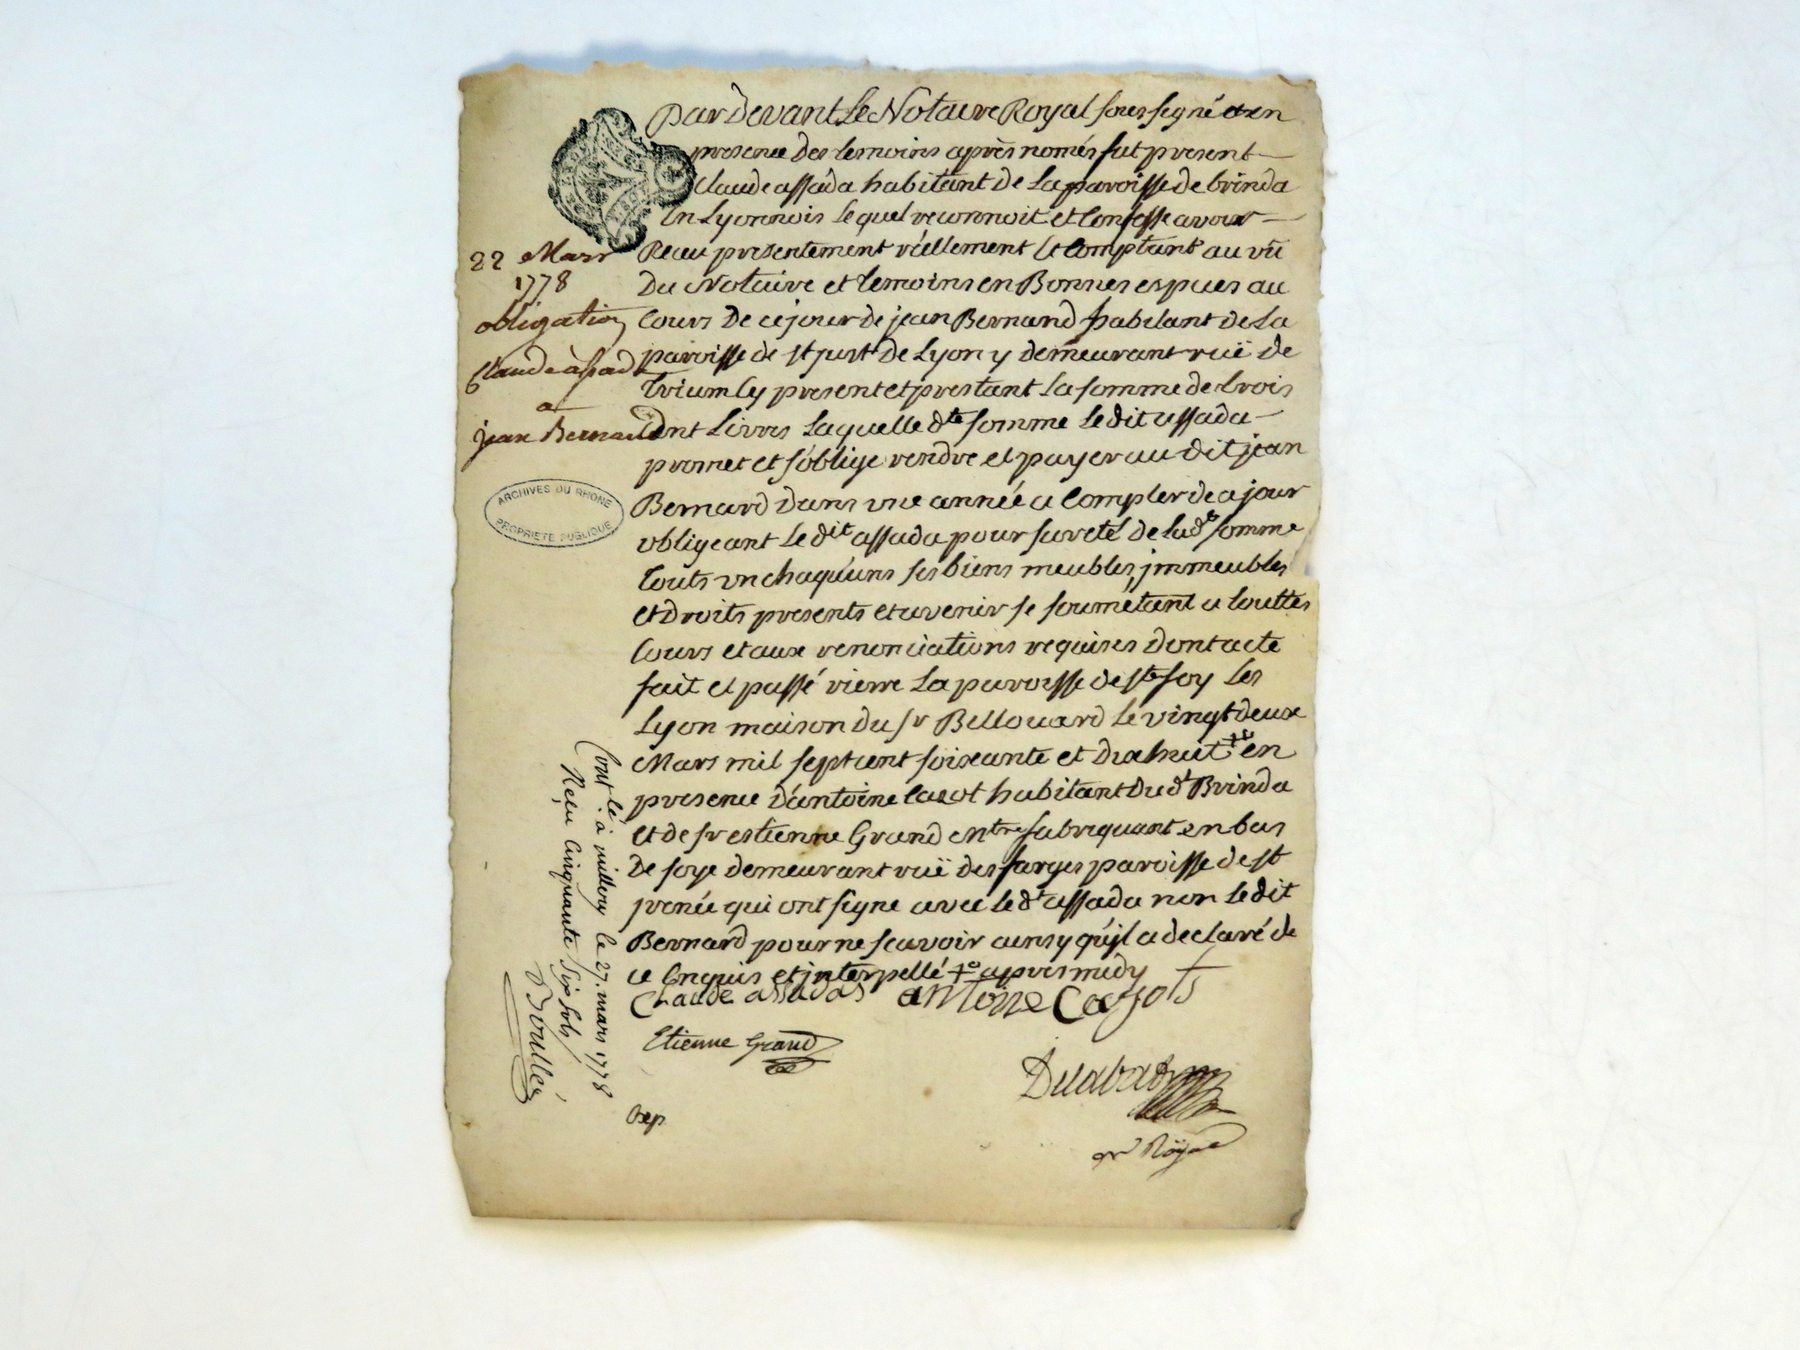 Par Devant Le Notaire Royal soussigné et en
presence des temoins après només fut present
Claude assada habitant de La paroisse de brinda
En Lyonnois lequel reconnoit et Confesse avoir
Receu presentement réellement et Comptant au vû
Du Notaire et temoins en Bonnes espuces au
Cours De ce jour de jean Bernard habitant de La
paroisse de st just de Lyon y demeurant ruë de
Trium Cy present et prestant La somme de trois
Cent Livres Laquelle dte somme Le dit assada
promet et s'oblige rendre et payer au dit jean
Bernard Dans une année a Compter de ce jour
obligeant Le dit assada pour sureté de Lad.e somme
touts un chaquuns ses biens meubles, jmmeubles
et Droits presents et avenir se soumétant a touttes
Cours et aux renonciations requises Dont acte
fait et passé riere La paroisse de ste foy Les
Lyon maison du sr Bellouard Le vingt deux
Mars mil sept cent soixante et Dix huit en
presence D'antoine Cazot habitant Du dt Brinda
et de sr estienne Grand mtre fabriquant en bas
De soye demeurant ruë des farges paroisse de st
jrenée qui ont signe avec le dt assada non Le dit
Bernard pour ne scavoir ainsy qu'jl a declaré de
ce Enquis et jnterpellé apres midy
Claude assadas antoine Cazots
Etienne Grand
Exp
Royal
22 Mars
1778
obligation
Claude assada
a
jean Bernard
ARCHIVES DU RHONE
PROPRIETE PUBLIQUE
Cont.lé à millery le 27. mars 1778
Reçu Cinquante Six Sols
Boullée